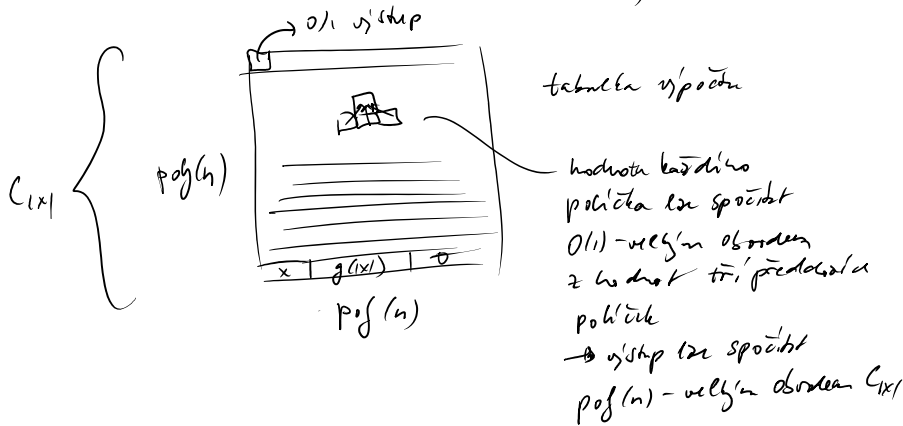 0/1 výstup
tabulka výpočtu
C|x|
poly(n)
x | g(|x|) | 0
poly(n)
hodnotu každého
políčka lze spočítat
O(1)-velkým obvodem
z hodnot tří předchozích
políček
→ výstup lze spočítat
poly(n)-velkým obvodem C|x|